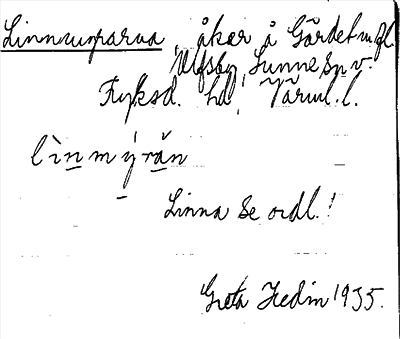 Linnmyrarna, åker å Gärdet m. fl.
Ulfsby, Sunne sn v.
Fryksd. hd, Värml. l.
lìnmýrän
Linna se ordl.!
Greta Hedin 1935.